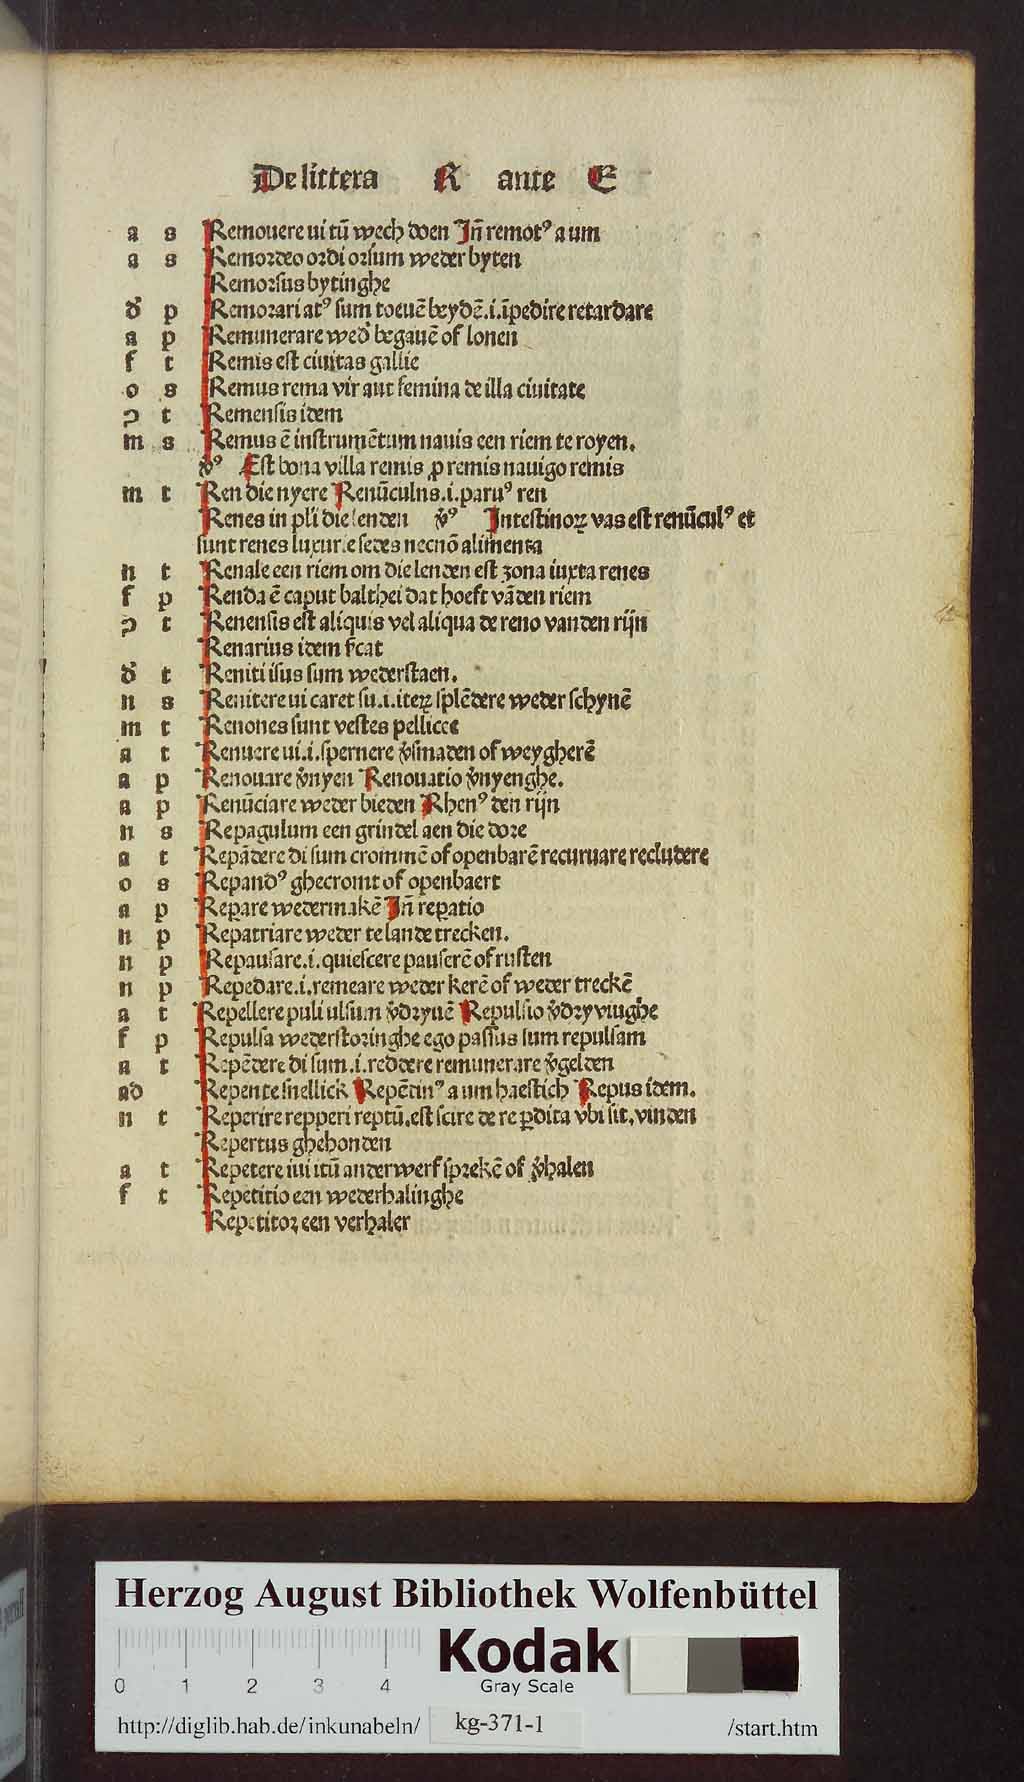 De littera R ante E
a s Remouere ui tū wech doen Jn̄ remotꝰ a um
a s Remordeo ordi orsum weder byten
Remorsus bytinghe
d̓ p Remorari atꝰ sum toeuē beydē.i.īpedire retardare
a p Remunerare wed̓ begauē of lonen
f t Remis est ciuitas gallie
o s Remus rema vir aut femina de illa ciuitate
ꝯ t Remensis idem
m s Remus ē instrumētum nauis een riem te royen.
v̓ꝰ Est bona villa remis ꝓ remis nauigo remis
m t Ren die nyere Renūculus.i.paruꝰ ren
Renes in pli die lenden v̓ꝰ Jntestinoꝝ vas est renūculꝰ et
sunt renes luxurie sedes necnō alimenta
n t Renale een riem om die lenden est zona iuxta renes
f p Renda ē caput balthei dat hoeft vādēn riem
ꝯ t Renensis est aliquis vel aliqua de reno vanden rijn
Renarius idem scat
d̓ t Reniti isus sum wederstaen.
n s Renitere ui caret su.i.iteꝝ splēdere weder schynē
m t Renones sunt vestes pellicee
a t Renuere ui.i.spernere v̓smaden of weygherē
a p Renouare v̓nyen Renouatio v̓nyenghe.
a p Renūciare weder bieden Rhenꝰ den rijn
n s Repagulum een grindel aen die dore
a t Repādere di sum crommē of openbarē recuruare recludere
o s Repandꝰ ghecromt of openbaert
a p Reꝑare wedermakē Jn̄ reꝑatio
n p Repatriare weder te lande trecken.
n p Repausare.i.quiescere pauserē of rusten
n p Repedare.i.remeare weder kerē of weder treckē
a t Repellere puli ulsum v̓dryuē Repulsio v̓dryuinghe
f p Repulsa wederstoringhe ego passus sum repulsam
a t Repēdere di sum.i.reddere remunerare v̓gelden
ad Repente snellick Repētinꝰ a um haestich Repus idem.
n t Reperire repperi reptū.est scire de re ꝑdita vbi sit.vinden
Repertus ghehonden
a t Repetere iui itū anderwerf sprekē of v̓halen
f t Repetitio een wederhalinghe
Repetitor een verhaler
Herzog August Bibliothek Wolfenbüttel
Kodak
Gray Scale
0 1 2 3 4
http://diglib.hab.de/inkunabeln/ kg-371-1 /start.htm